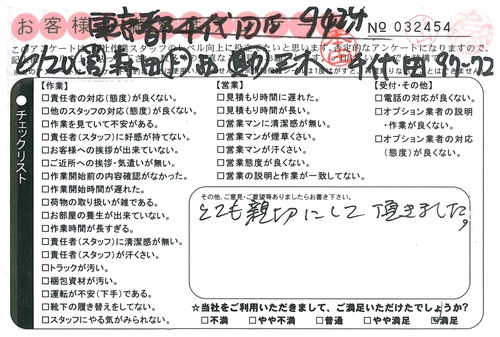 お客様
東京都千代田区
№ 032454
このアンケートは
作業スタッフのレベル向上に役立てたいと思います。否定的なアンケートになりますので、
チェックリスト
【作業】
□責任者の対応(態度)が良くない。
□他のスタッフの対応(態度)が良くない。
□作業を見ていて不安がある。
□責任者(スタッフ)に好感が持てない。
□お客様への挨拶が出来ていない。
□ご近所への挨拶・気遣いが無い。
□作業開始前の内容確認がなかった。
□作業開始時間が遅れた。
□荷物の取り扱いが雑である。
□お部屋の養生が出来ていない。
□作業時間が長すぎる。
□責任者(スタッフ)に清潔感が無い。
□責任者(スタッフ)が汗くさい。
□トラックが汚い。
□梱包資材が汚い。
□運転が不安(下手)である。
□靴下の履き替えをしてない。
□スタッフにやる気がみられない。
【営業】
□見積もり時間に遅れた。
□見積もり時間が長い。
□営業マンに清潔感が無い。
□営業マンが煙草くさい。
□営業マンが汗くさい。
□営業態度が良くない。
□営業の説明と作業が一致してない。
【受付・その他】
□電話の対応が良くない。
□オプション業者の説明
・作業が良くない。
□オプション業者の対応
(態度)が良くない。
その他、ご意見・ご要望等ありましたらお書き下さい。
とても親切にして頂きました。
☆当社をご利用いただきまして、ご満足いただけたでしょうか?
□不満 □やや不満 □普通 □やや満足 ☑満足